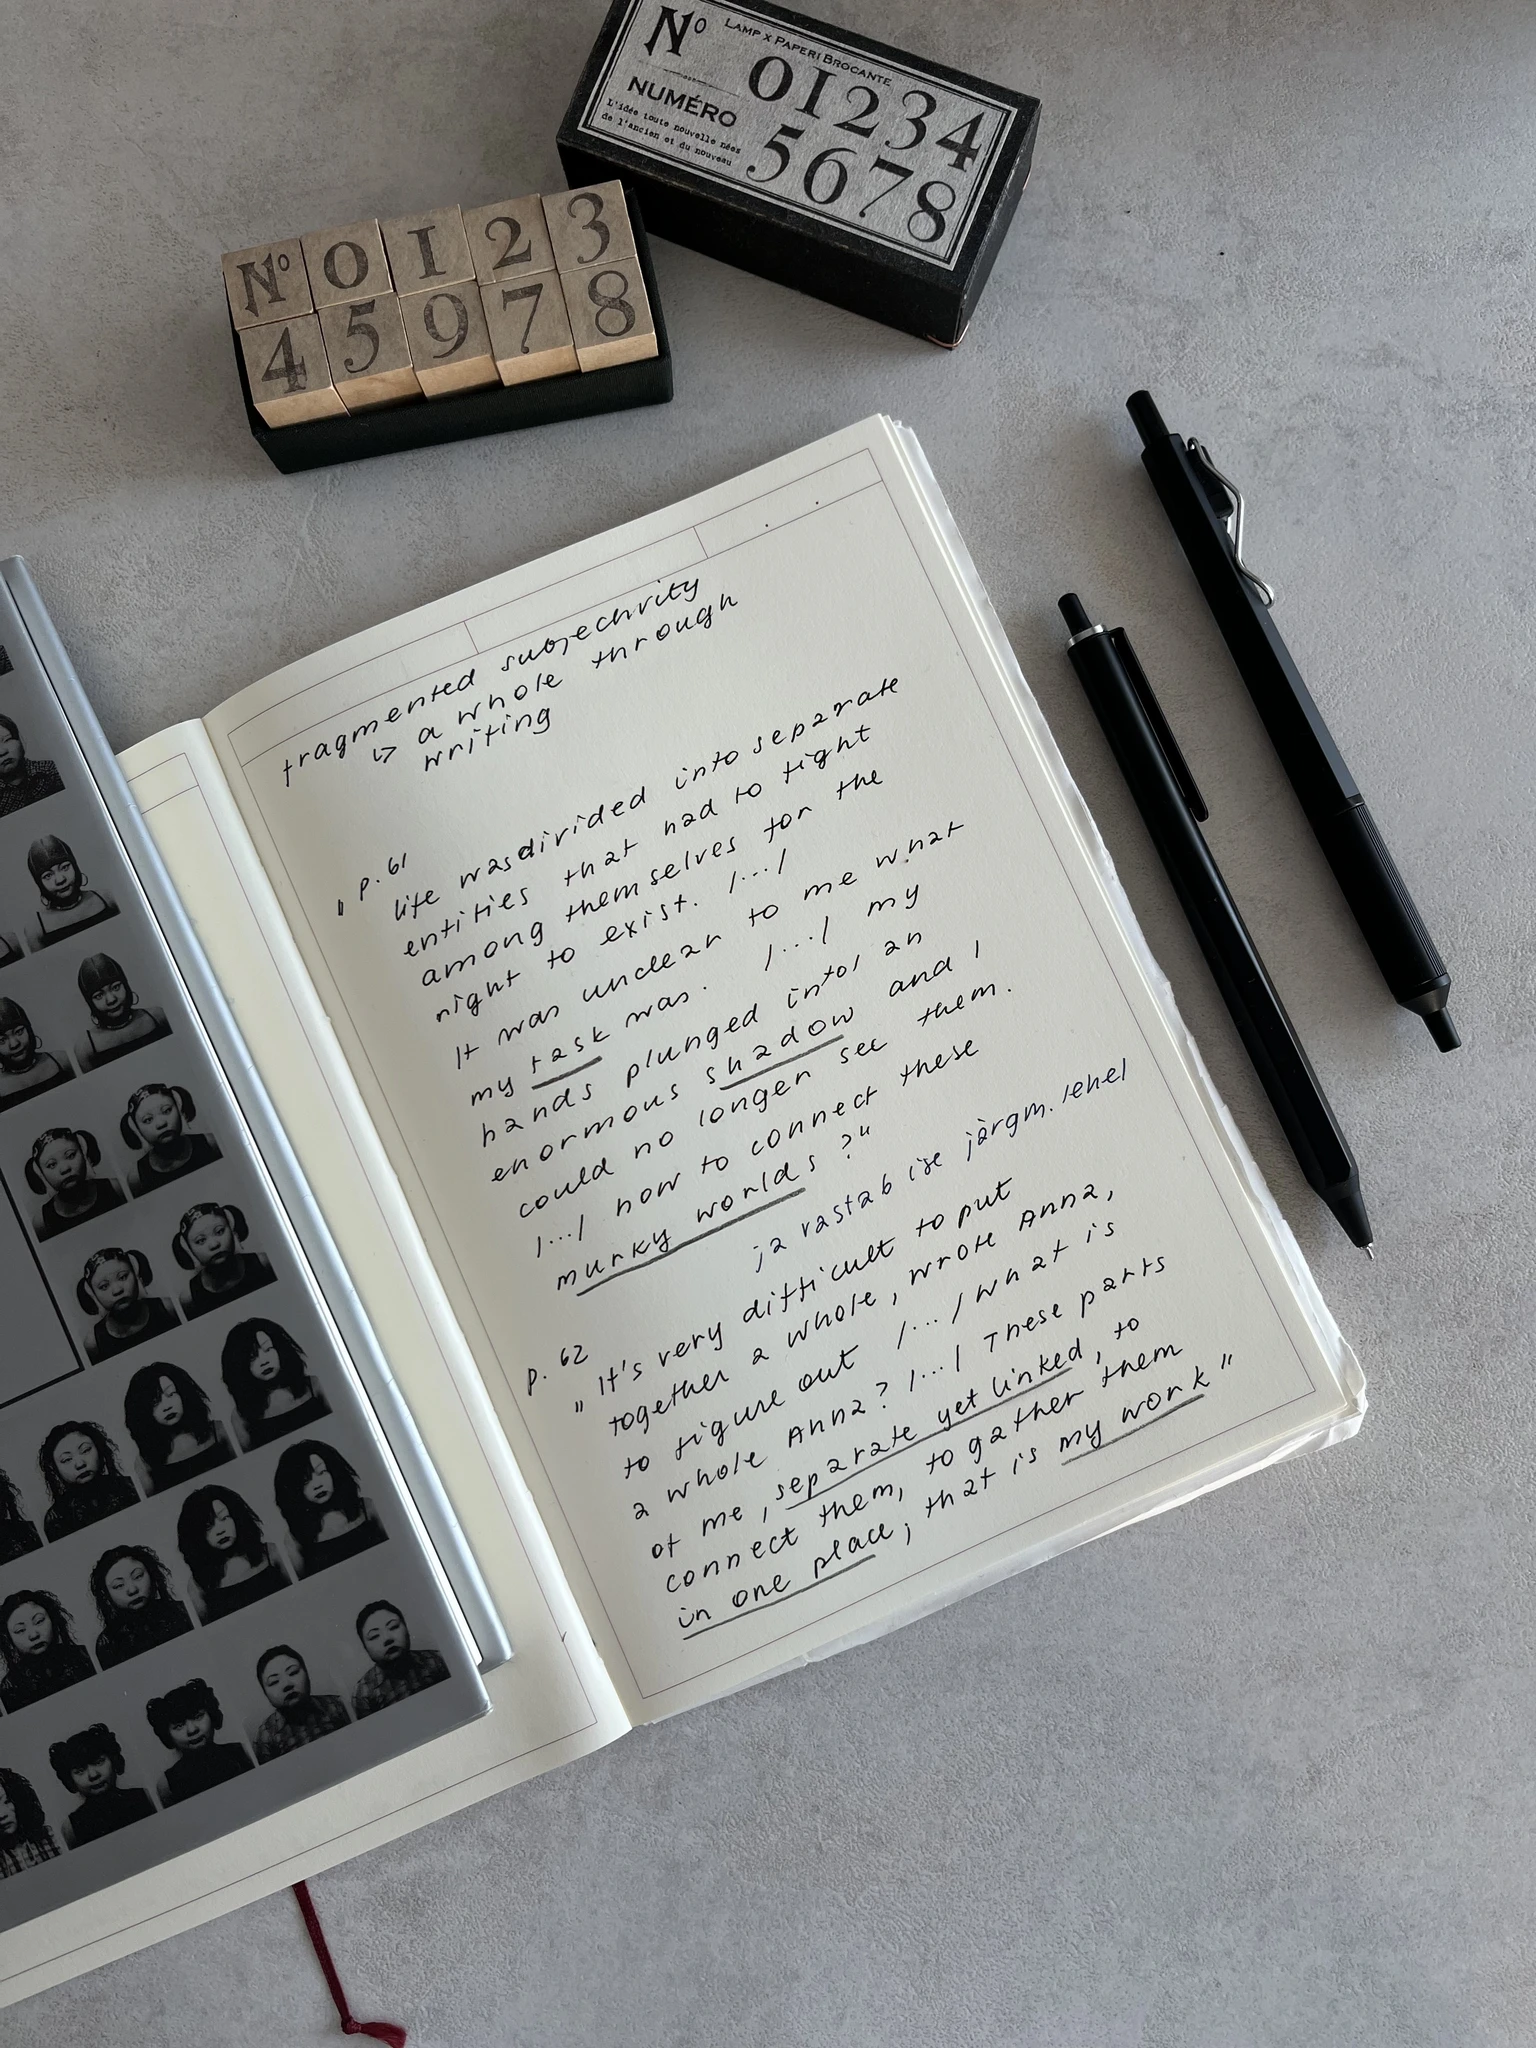 Nº
LAMP x PAPERI BROCANTE
NUMÉRO
01234
L'idée toute nouvelle nées
5678
de l'ancien et du nouveau
Nº 0 1 2 3
4 5 9 7 8
fragmented subjectivity
↳ a whole through
writing
p. 61
" life was divided into separate
entities that had to fight
among themselves for the
right to exist. /.../
It was unclear to me what
my task was. /.../ my
hands plunged into/ an
enormous shadow and I
could no longer see them.
/.../ how to connect these
murky worlds?"
ja vastab ise järgm. lehel
p. 62
" It's very difficult to put
together a whole, wrote Anna,
to figure out /.../ what is
a whole Anna? /.../ These parts
of me, separate yet linked, to
connect them, to gather them
in one place; that is my work"